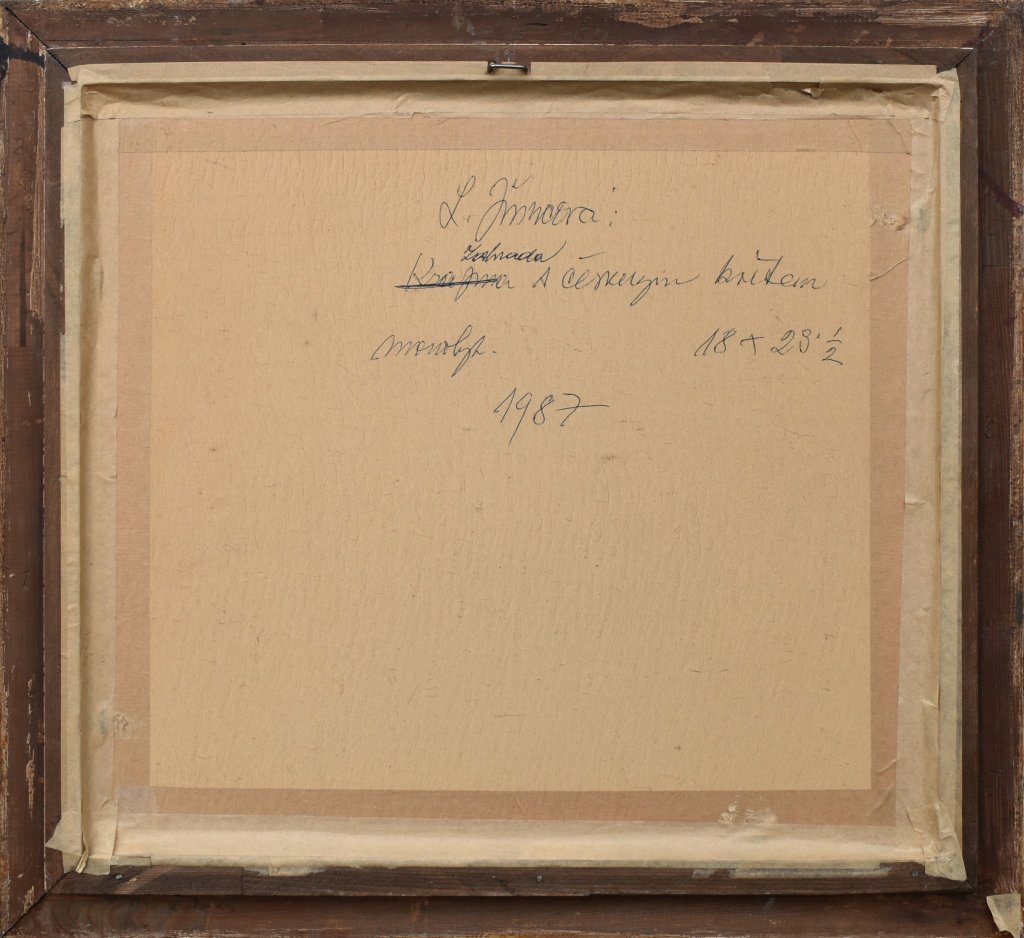 L. Jiřincová:
Zahrada
Krajina s českým květem
monotyp. 18 x 23 ½
1987